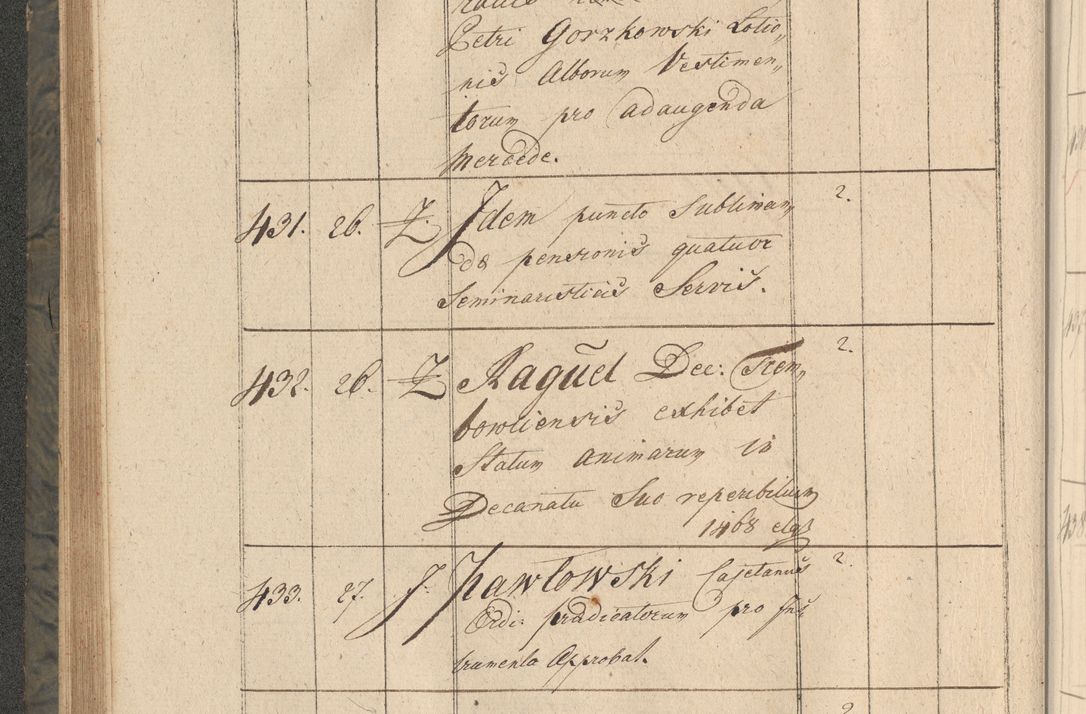 Petri Gorzkowski Lotio„
nis Alborum Vestimen„
torum pro adaugenda
Mercede.
431. 26. Z. Idem puncto Subliman„ 2.
dæ pensionis quatuor
Seminaristicis Servis.
432. 26. Z Raguel Dec: Trem„ 2.
bowliensis exhibet
Statum animarum in
Decanatu Suo reperibilium
1468
433. 27. J. Pawlowski Cajetanus 2.
Ordi: prædicatorum pro Ins
trumento Approbat.
2